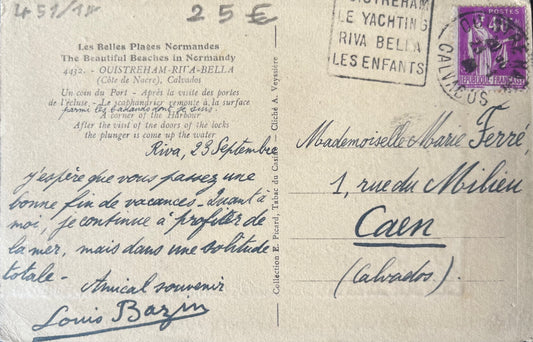 451/18
25€
Les Belles Plages Normandes
The Beautiful Beaches in Normandy
4432. - OUISTREHAM-RIVA-BELLA
(Côte de Nacre), Calvados
Un coin du Port - Après la visite des portes
de l'écluse - Le scaphandrier remonte à la surface
parmi les badauds dont je suis.
A corner of the Harbour
After the visit of tne doors of the locks
the plunger is come up the water
Riva, 23 Septembre
j'espère que vous passez une
bonne fin de vacances - Quant à
moi, je continue à profiter de
la mer, mais dans une solitude
totale -
Amical souvenir
Louis Bazin
Collection E. Picard, Tabac du Casino - Cliché A. Veyssière
OUISTREHAM
LE YACHTING
RIVA BELLA
LES ENFANTS
CALVADOS
40c
REPUBLIQUE FRANÇAISE
Mademoiselle Marie Ferré,
1, rue du Milieu
Caen
(Calvados)